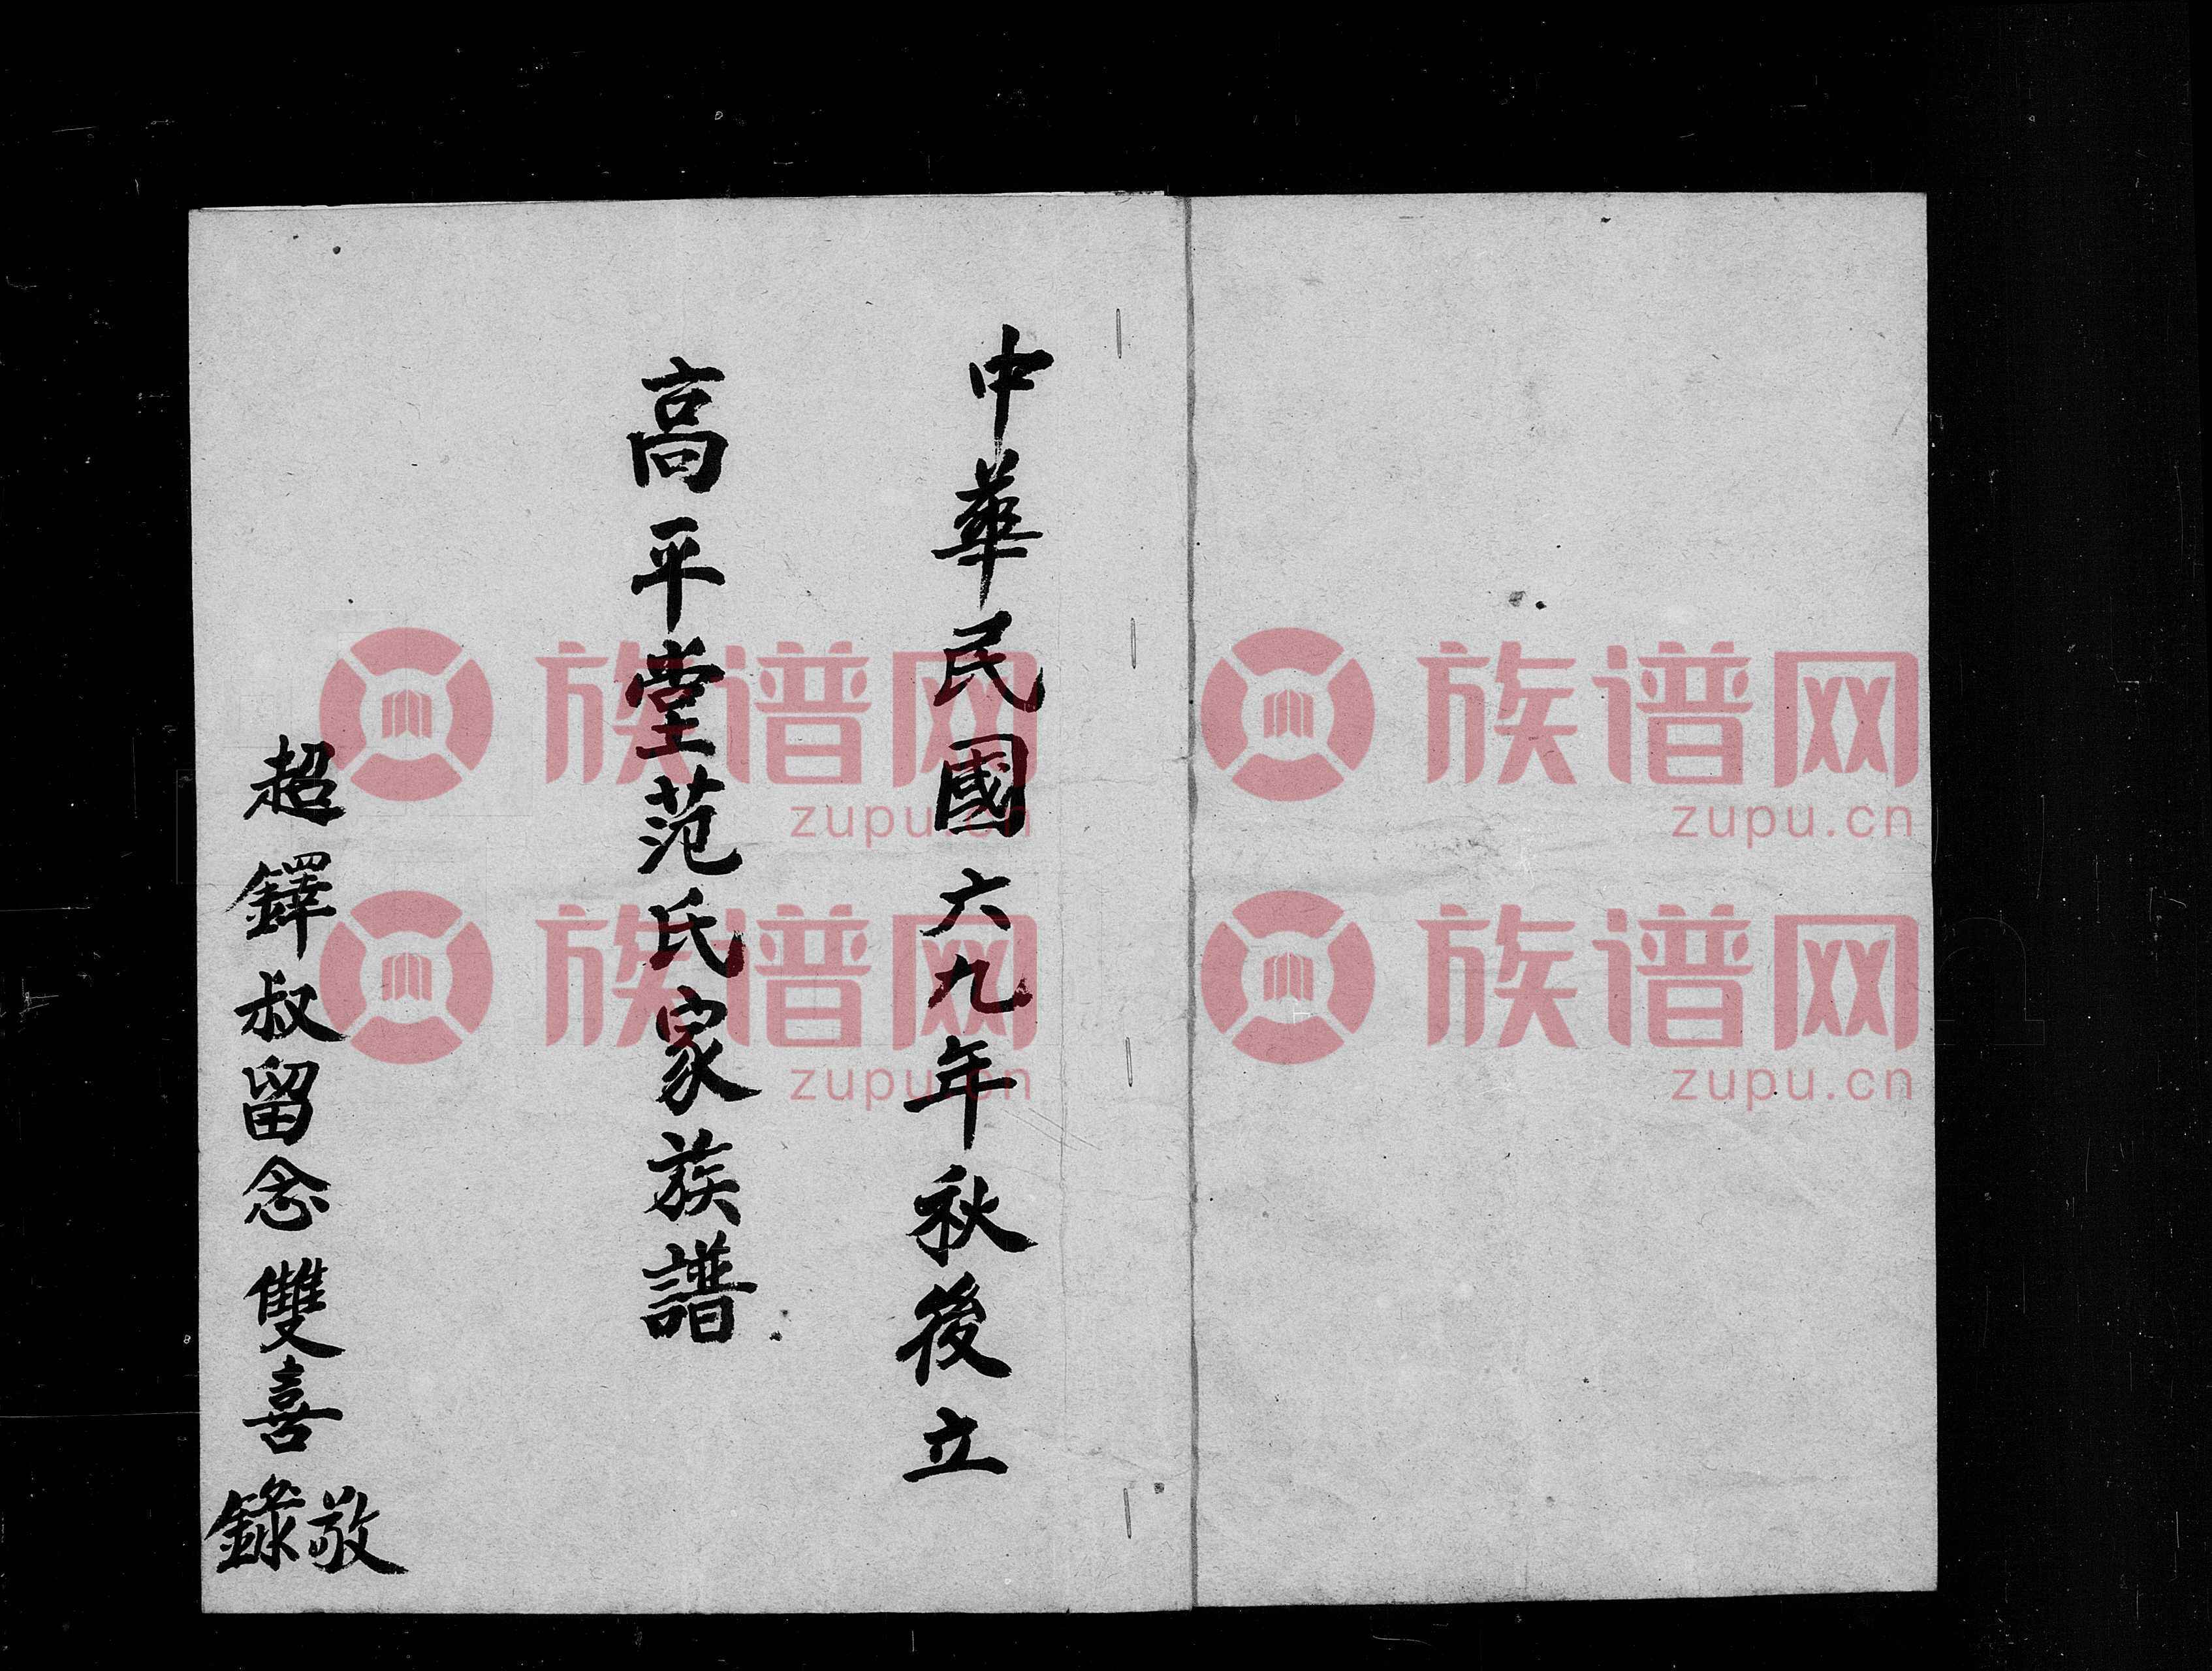 中華民國六九年秋後立
高平堂范氏家族譜
超鐸叔留念雙喜敬錄
族谱网
zupu.cn
族谱网
zupu.cn
族谱网
zupu.cn
族谱网
zupu.cn